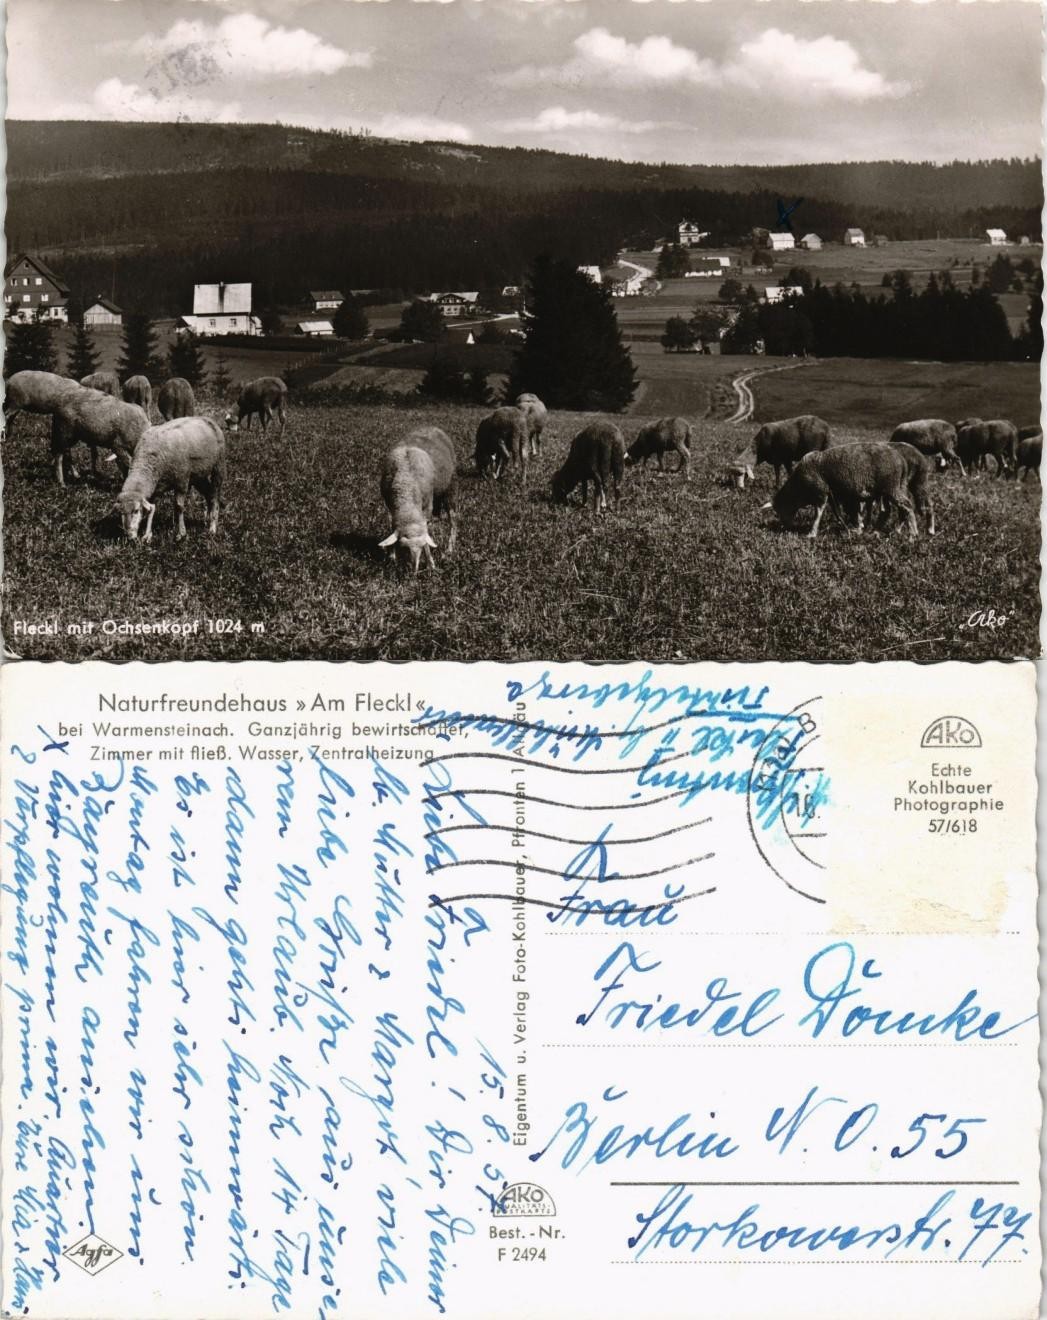 Fleckl mit Ochsenkopf 1024 m
"Ako"
Naturfreundehaus »Am Fleckl«
bei Warmensteinach. Ganzjährig bewirtschaftet,
Zimmer mit fließ. Wasser, Zentralheizung
AKo
Echte
Kohlbauer
Photographie
57/618
Eigentum u. Verlag Foto-Kohlbauer, Pfronten 1 Allgäu
15. 8. 57.
Liebe Friedel! Dir Deiner
lb. Mutter & Margot viele
liebe Grüße aus unse-
rem Urlaub. Noch 14 Tage
dann geht's heimwärts.
Es ist hier sehr schön.
Montag fahren wir uns
Bayreuth ansehen.
X hier wohnen wir. Quartier
& Verpflegung prima.
Frau
Friedel Domke
Berlin N. O. 55
Storkowerstr. 77.
AKo
QUALITÄTS-
POSTKARTE
Best.-Nr.
F 2494
Agfa